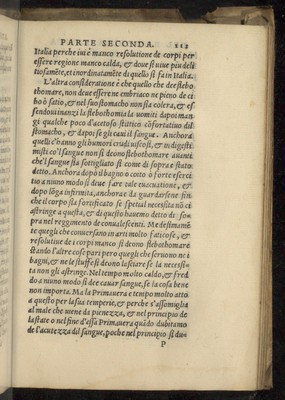 PARTE SECONDA. 113
Italia perche iui è manco resolutione de corpi per
essere regione manco calda, & doue si uiue piu deli
tiosamēte, et inordinatamēte di quello si fa in Italia.
L'altra consideratione è che quello che dee flebo
thomare, non deue essere ne embriaco ne pieno de ci
bo ò satio, & nel suo stomacho nō sia colera, & es
sendoui inanzi la flebothomia la uomiti dapoi man
gi qualche poco d'acetoso stitico cōfortatiuo dil
stomacho, & dapoi se gli caui il sangue. Anchora
quelli c'hanno gli humori crudi uiscosi, & indigesti
misti co'l sangue non si deono flebothomare auanti
che'l sangue sia sottigliato si come di sopra è stato
detto. Anchora dopo il bagno o coito ò forte eserci
tio a niuno modo si deue fare tale euacuatione, &
dopo lōga infirmita, anchor a da guardarsene fin
che il corpo sia fortificato se spetial necessita nō ci
astringe a questa, & di questo hauemo detto di so-
pra nel reggimento de conualescenti. Medesimamē
te quegli che conuersano in arti molto faticose, &
resolutiue de i corpi manco si deono flebothomare
stando l'altre cose pari pero quegli che seruono ne i
bagni, & ne le stuffe si deono lasciare se la necessi-
ta non gli astringe. Nel tempo molto caldo, & fred
do a niuno modo si dee cauar sangue, se la cosa bene
non importa. Ma la Primauera e tempo molto atto
a questo per la sua temperie, & perche s'assomiglia
al male che uiene da pienezza, & nel principio de
la state o nel fine d'essa Primauera quādo dubitamo
de l'acutezza dil sangue, poche nel principio si duo
P